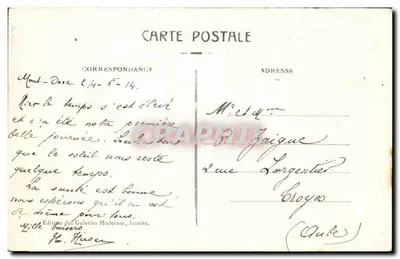 CARTE POSTALE
CORRESPONDANCE
ADRESSE
Mont-Dore 24-6-14.
Hier le temps s'est élevé
et c'a été notre première
belle journée. Souhaitons
que le soleil nous reste
quelque temps.
La santé est bonne
nous espérons qu'il en est
de même pour tous.
Mille baisers
Editions des Galeries Modernes, Issoire.
Mr et Mme
P. Zrigue
2 rue Largentier
Troyes
(Aube)
CPARAMA